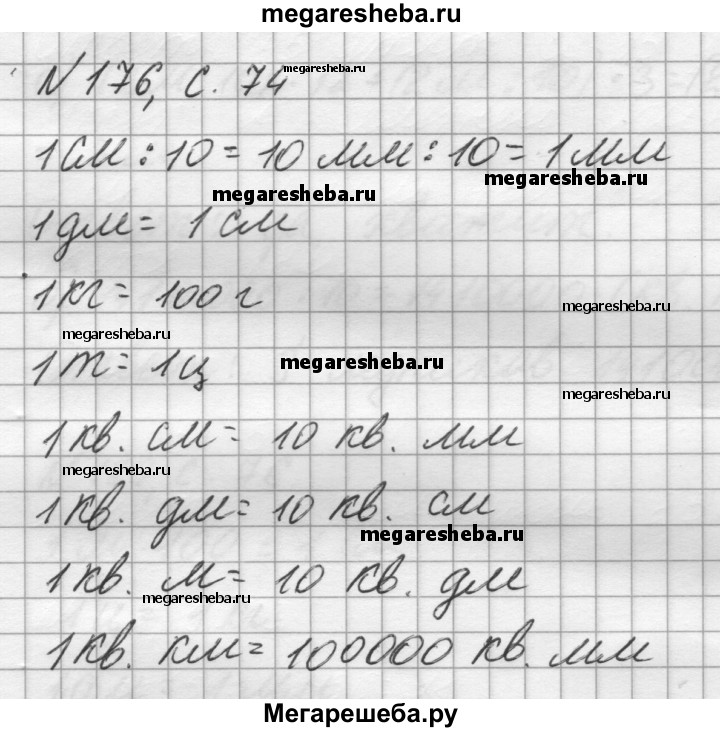 megaresheba.ru
N 176, с. 74 megaresheba.ru
1 см : 10 = 10 мм : 10 = 1 мм
megaresheba.ru megaresheba.ru
1 дм = 1 см
1 кг = 100 г
megaresheba.ru
megaresheba.ru
1 т = 1 ц megaresheba.ru
megaresheba.ru
1 кв. см = 10 кв. мм
megaresheba.ru
1 кв. дм = 10 кв. см
megaresheba.ru
1 кв. м = 10 кв. дм
megaresheba.ru
1 кв. км = 100000 кв. мм
Мегарешеба.ру